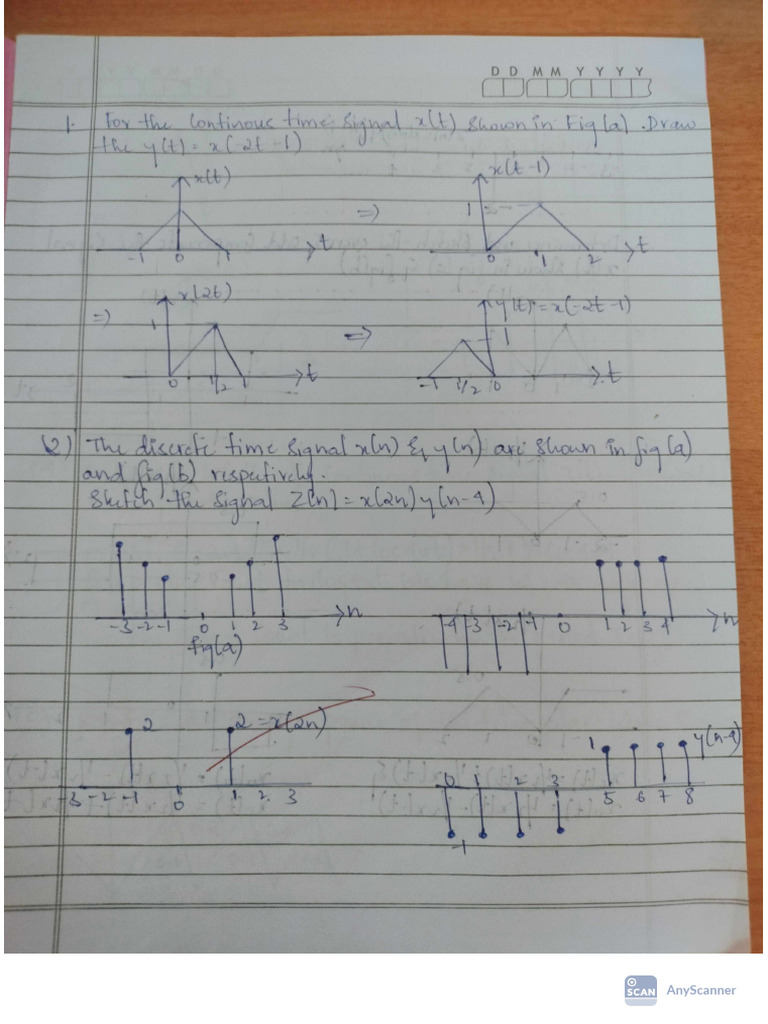 D D M M Y Y Y Y
1. For the Continous time signal x(t) shown in Fig(a). Draw
the y(t) = x(-2t-1)
x(t)
-1 0 1 t
=)
x(t-1)
1
0 1 2 t
=)
x(2t)
1
0 1/2 1 t
=)
y(t) = x(-2t-1)
1
-1 1/2 0 t
2) The discrete time signal x(n) & y(n) are shown in fig(a)
and fig(b) respetively.
Sketch the signal Z(n) = x(2n) y(n-4)
-3 -2 -1 0 1 2 3 n
fig(a)
-4 -3 -2 -1 0 1 2 3 4 n
2
2 = x(2n)
-3 -2 -1 0 1 2 3
1
y(n-4)
0 1 2 3 5 6 7 8
-1
SCAN AnyScanner